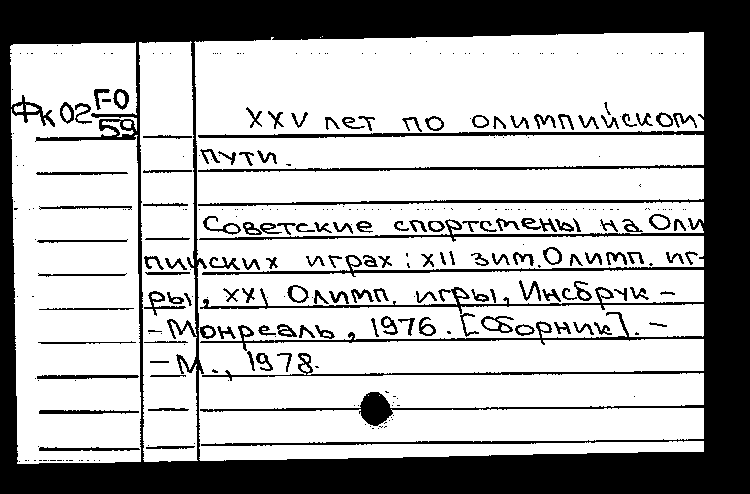 Фк 02 FO
59
XXV лет по олимпийскому
пути.
Советские спортсмены на Оли
пийских играх: XII зим. Олимп. иг-
ры, XXI Олимп. игры, Инсбрук –
– Монреаль, 1976. [Сборник]. –
– М., 1978.